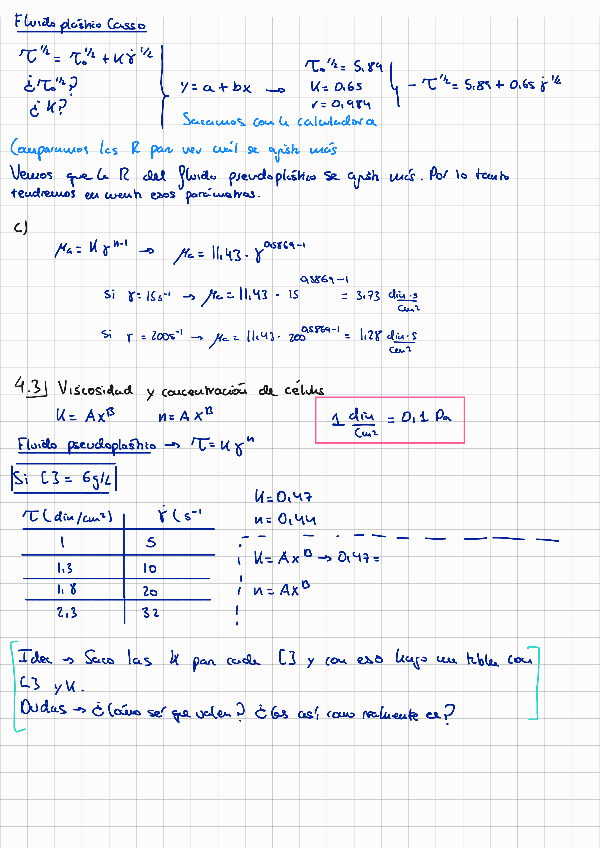 Fluido plástico Casso
τ^1/2 = τ₀^1/2 + K γ̇^1/2
¿τ₀^1/2?
¿K?
y = a + bx →
τ₀^1/2 = 5,89
K = 0,65
r = 0,984
– τ^1/2 = 5,89 + 0,65 γ̇^1/2
Sacamos con la calculadora
Comparamos las R para ver cuál se ajusta más
Vemos que la R del fluido pseudoplástico se ajusta más. Por lo tanto
tendremos en cuenta esos parámetros.
c)
μa = K γ^n-1 → μa = 11,43 · γ^0,5869-1
Si γ = 15 s^-1 → μa = 11,43 · 15^0,5869-1 = 3,73 din·s/cm²
Si γ = 200 s^-1 → μa = 11,43 · 200^0,5869-1 = 1,28 din·s/cm²
4.3) Viscosidad y concentración de células
K = Ax^B n = Ax^B
1 din/cm² = 0,1 Pa
Fluido pseudoplástico → τ = K γ^n
Si [] = 6 g/L
K = 0,47
n = 0,44
τ (din/cm²) γ̇ (s^-1
1 5
1,3 10
1,8 20
2,3 32
K = Ax^B → 0,47 =
n = Ax^B
Idea → Saco las K para cada [] y con eso hago una tabla con
[] y K.
Dudas → ¿Cómo sé que valen? ¿Es así como realmente es?